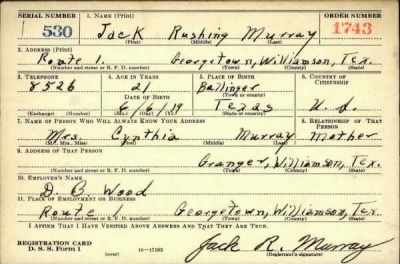 SERIAL NUMBER 1. NAME (Print) ORDER NUMBER
530 Jack Rushing Murray 1743
(First) (Middle) (Last)
2. ADDRESS (Print)
Route 1. Georgetown, Williamson, Tex.
(Number and street or R. F. D. number) (Town) (County) (State)
3. TELEPHONE 4. AGE IN YEARS 5. PLACE OF BIRTH 6. COUNTRY OF CITIZENSHIP
8526 21 Ballinger
DATE OF BIRTH (Town or county)
6/6/19 Texas U. S.
(Exchange) (Number) (Mo.) (Day) (Yr.) (State or country)
7. NAME OF PERSON WHO WILL ALWAYS KNOW YOUR ADDRESS 8. RELATIONSHIP OF THAT PERSON
Mrs. Cynthia Murray Mother
(Mr., Mrs., Miss) (First) (Middle) (Last)
9. ADDRESS OF THAT PERSON
Granger, Williamson, Tex.
(Number and street or R. F. D. number) (Town) (County) (State)
10. EMPLOYER'S NAME
D. B. Wood
11. PLACE OF EMPLOYMENT OR BUSINESS
Route 1 Georgetown, Williamson, Tex
(Number and street or R. F. D. number) (Town) (County) (State)
I AFFIRM THAT I HAVE VERIFIED ABOVE ANSWERS AND THAT THEY ARE TRUE.
REGISTRATION CARD
D. S. S. Form 1 (over) Jack R. Murray
(Registrant's signature)